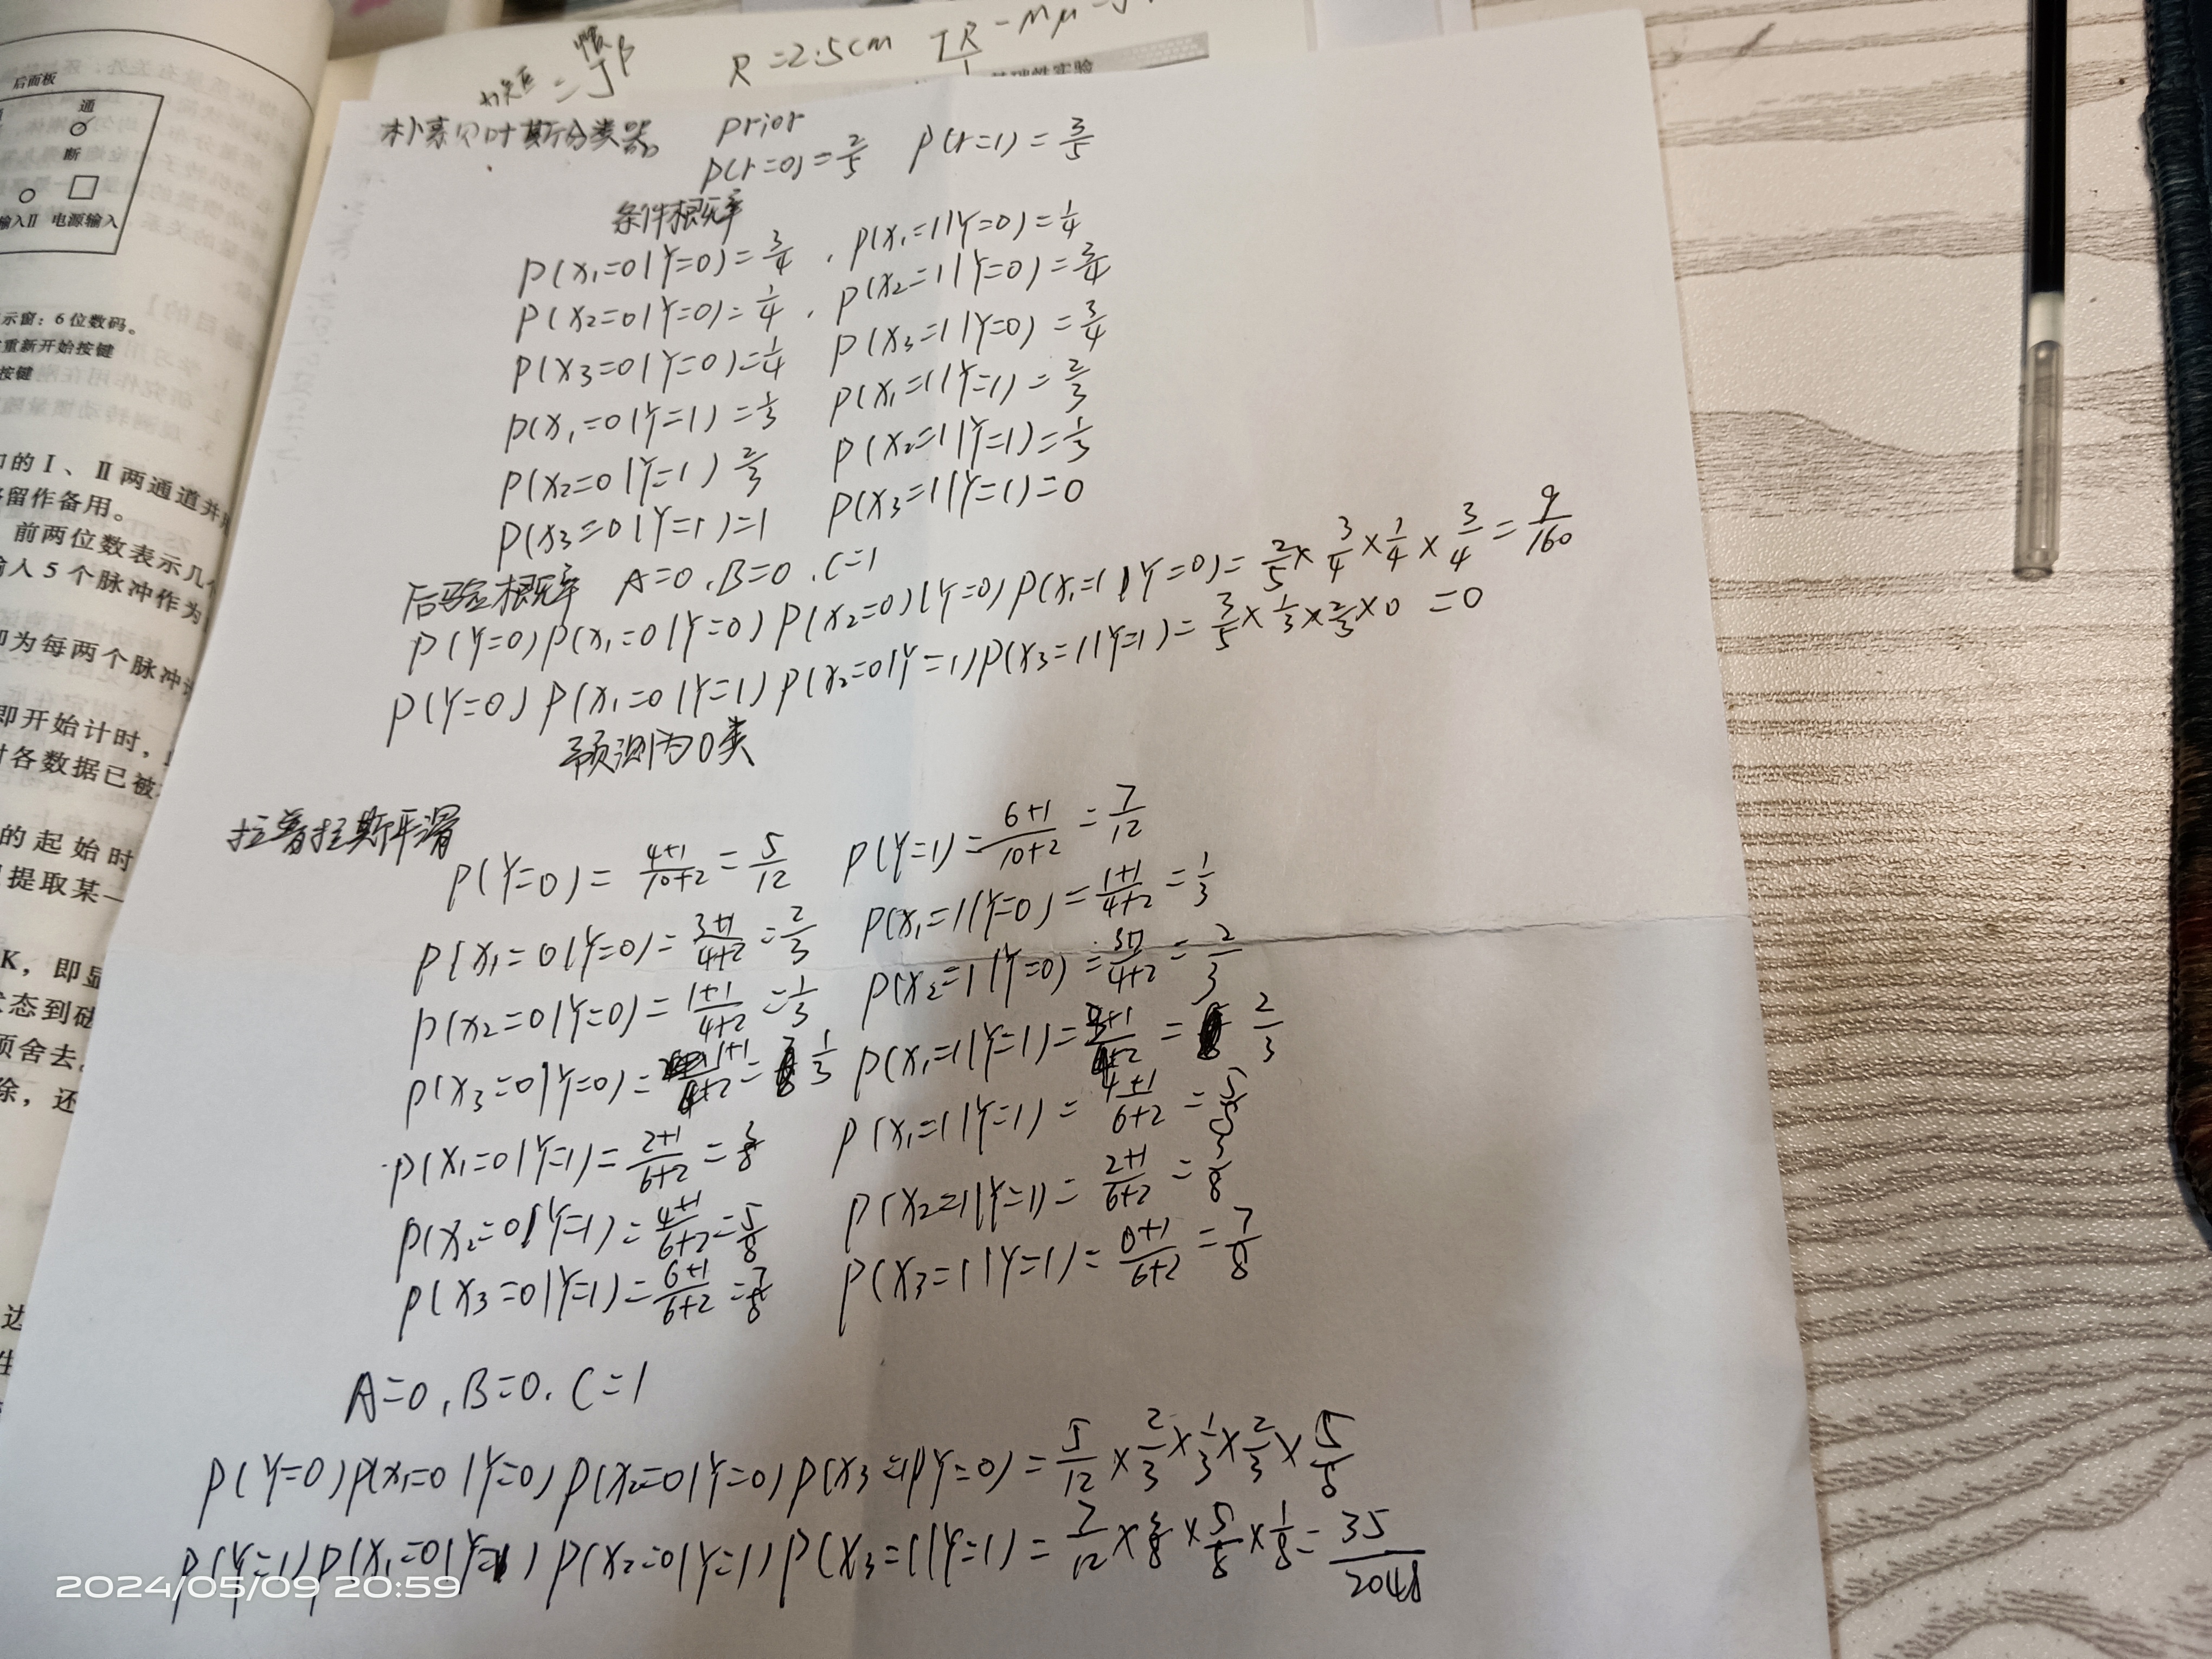 后面板
通
断
输入II 电源输入
示窗：6位数码。
重新开始按键
按键
的 I 、 II 两通道并
留作备用。
前两位数表示几个
输入 5 个脉冲作为
即为每两个脉冲
即开始计时，
各数据已被
的起始时
提取某一
K，即显
状态到磁
须舍去。
除，还
R=2.5cm
基础性实验
朴素贝叶斯分类器 prior
P(Y=0)=2/5 P(Y=1)=3/5
条件概率
P(X₁=0|Y=0)=3/4 , P(X₁=1|Y=0)=1/4
P(X₂=0|Y=0)=1/4 , P(X₂=1|Y=0)=3/4
P(X₃=0|Y=0)=1/4 P(X₃=1|Y=0)=3/4
P(X₁=0|Y=1)=1/3 P(X₁=1|Y=1)=2/3
P(X₂=0|Y=1) 2/3 P(X₂=1|Y=1)=1/3
P(X₃=0|Y=1)=1 P(X₃=1|Y=1)=0
后验概率 A=0,B=0,C=1
P(Y=0)P(X₁=0|Y=0)P(X₂=0)|Y=0)P(X₁=1|Y=0)=2/5×3/4×1/4×3/4=9/160
P(Y=0)P(X₁=0|Y=1)P(X₂=0|Y=1)P(X₃=1|Y=1)=3/5×1/3×2/3×0=0
预测为0类
拉普拉斯平滑
P(Y=0)=4+1/10+2=5/12 P(Y=1)=6+1/10+2=7/12
P(X₁=0|Y=0)=3+1/4+2=2/3 P(X₁=1|Y=0)=1+1/4+2=1/3
P(X₂=0|Y=0)=1+1/4+2=1/3 P(X₂=1|Y=0)=3+1/4+2=2/3
P(X₃=0|Y=0)=1+1/4+2=1/3 P(X₁=1|Y=1)=3+1/4+2=2/3
P(X₁=0|Y=1)=2+1/6+2=3/8 P(X₁=1|Y=1)=4+1/6+2=5/8
P(X₂=0|Y=1)=4+1/6+2=5/8 P(X₂=1|Y=1)=2+1/6+2=3/8
P(X₃=0|Y=1)=6+1/6+2=7/8 P(X₃=1|Y=1)=0+1/6+2=7/8
A=0,B=0.C=1
P(Y=0)P(X₁=0|Y=0)P(X₂=0|Y=0)P(X₃=1|Y=0)=5/12×2/3×1/3×2/3×5/8
P(Y=1)P(X₁=0|Y=1)P(X₂=0|Y=1)P(X₃=1|Y=1)=7/12×3/8×5/8×1/8=35/2048
2024/05/09 20:59